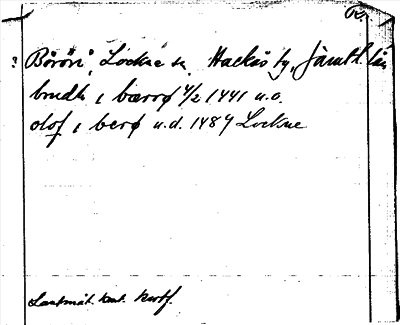 ? Börön, Lockne sn, Hackås tg, Jämtl. län
brudh i bærrø 4/2 1441 u.o.
olof i berø u.d. 1489 Lockne
Lantmät. kont.